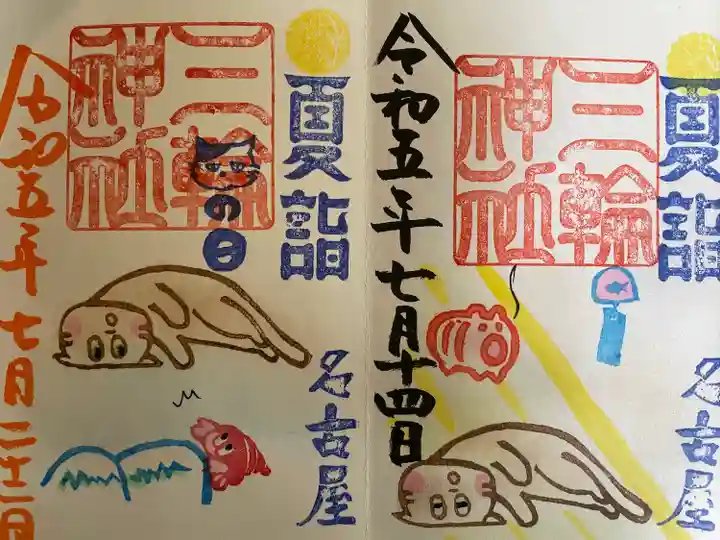 夏詣
三輪神社
令和五年七月十四日
名古屋
夏詣
三輪神社
の日
名古屋
令和五年七月二十二日